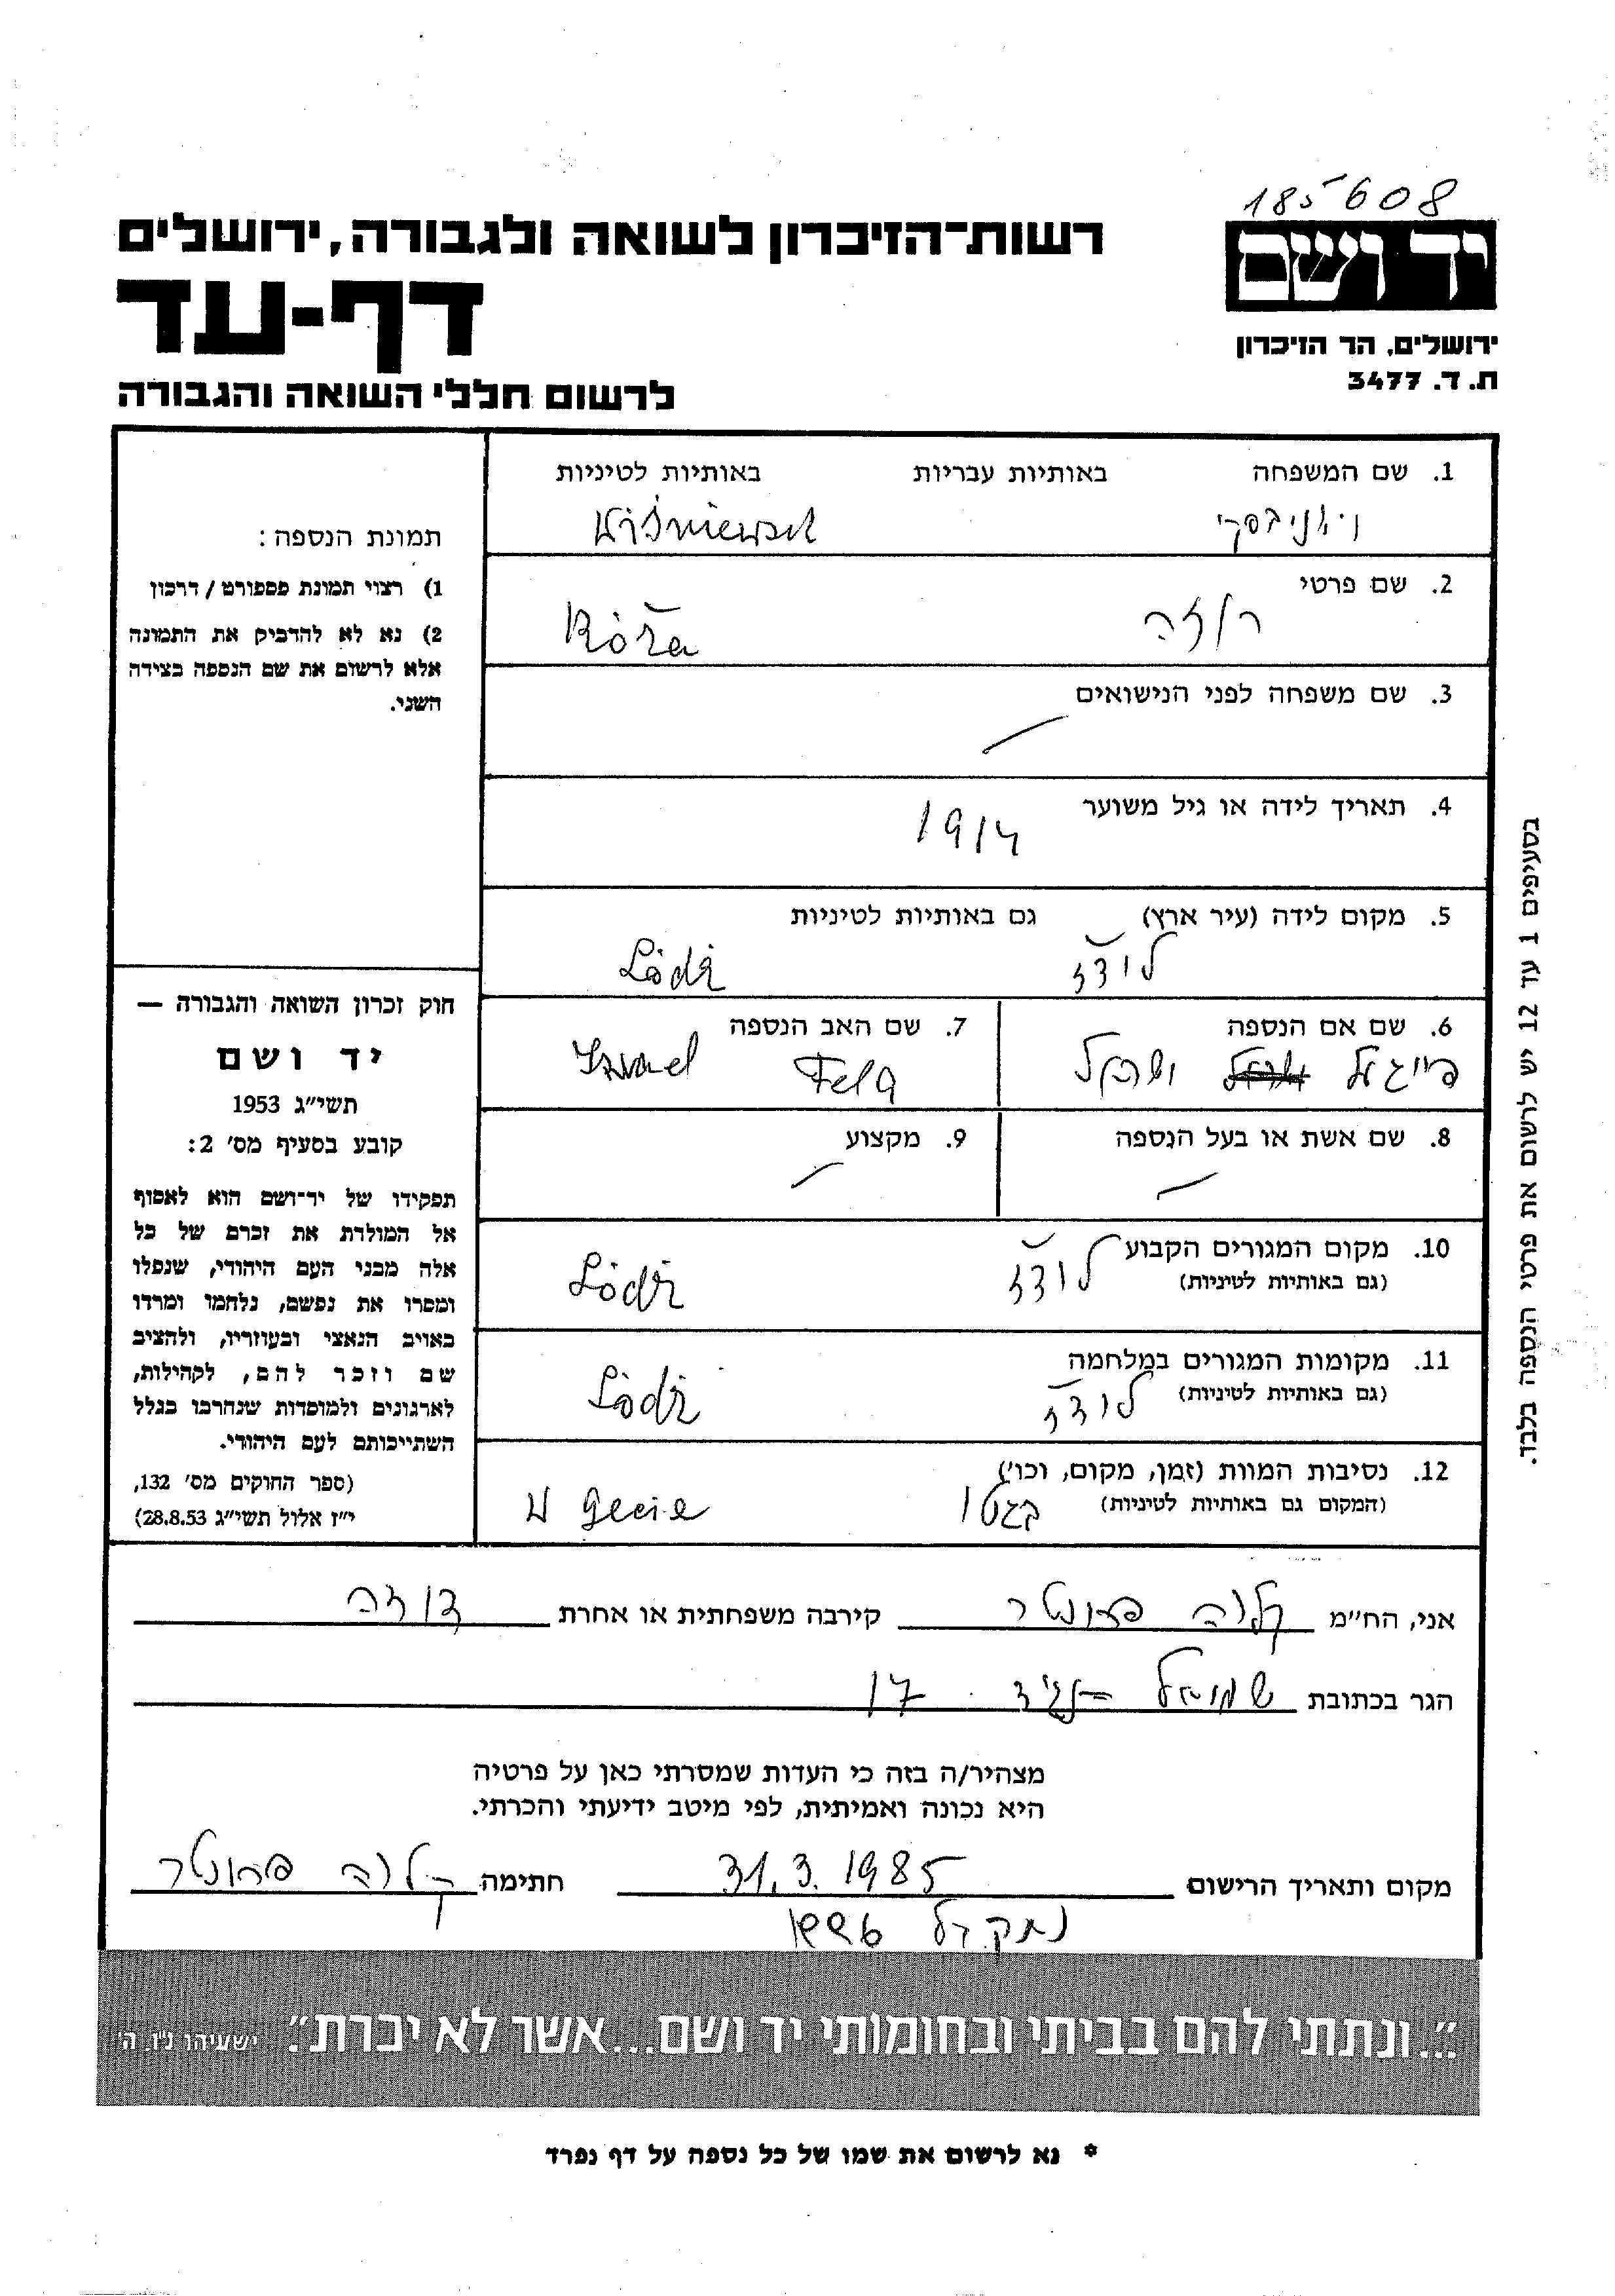 185608
רשות־הזיכרון לשואה ולגבורה, ירושלים
יד ושם
דף-עד
ירושלים, הר הזיכרון
ת. ד. 3477
לרשום חללי השואה והגבורה
1. שם המשפחה באותיות עבריות באותיות לטיניות
וישניבסקי Wiśniewsk
2. שם פרטי
רוזה Róża
3. שם משפחה לפני הנישואים
4. תאריך לידה או גיל משוער 1914
5. מקום לידה (עיר ארץ) גם באותיות לטיניות
לודז Łódź
6. שם אם הנספה
פייגל ישראל
7. שם האב הנספה
Fela Izrael
8. שם אשת או בעל הנספה
9. מקצוע
10. מקום המגורים הקבוע
(גם באותיות לטיניות)
לודז Łódź
11. מקומות המגורים במלחמה
(גם באותיות לטיניות)
לודז Łódź
12. נסיבות המוות (זמן, מקום, וכו')
(המקום גם באותיות לטיניות)
בגטו W gecie
תמונת הנספה:
1) רצוי תמונת פספורט / דרכון
2) נא לא להדביק את התמונה
אלא לרשום את שם הנספה בצידה
השני.
חוק זכרון השואה והגבורה —
יד ושם
תשי״ג 1953
קובע בסעיף מס׳ 2:
תפקידו של יד־ושם הוא לאסוף
אל המולדת את זכרם של כל
אלה מבני העם היהודי, שנפלו
ומסרו את נפשם, נלחמו ומרדו
באויב הנאצי ובעוזריו, ולהציב
שם וזכר להם, לקהילות,
לארגונים ולמוסדות שנחרבו בגלל
השתייכותם לעם היהודי.
(ספר החוקים מס׳ 132,
י״ז אלול תשי״ג 28.8.53)
בסעיפים 1 עד 12 יש לרשום את פרטי הנספה בלבד.
אני, הח״מ קירבה משפחתית או אחרת דודה
הגר בכתובת שמואל 17
מצהיר/ה בזה כי העדות שמסרתי כאן על פרטיה
היא נכונה ואמיתית, לפי מיטב ידיעתי והכרתי.
מקום ותאריך הרישום 31.3.1985 חתימה
נתקבל
״...ונתתי להם בביתי ובחומותי יד ושם...אשר לא יכרת״. ישעיהו נ״ו, ה׳
* נא לרשום את שמו של כל נספה על דף נפרד